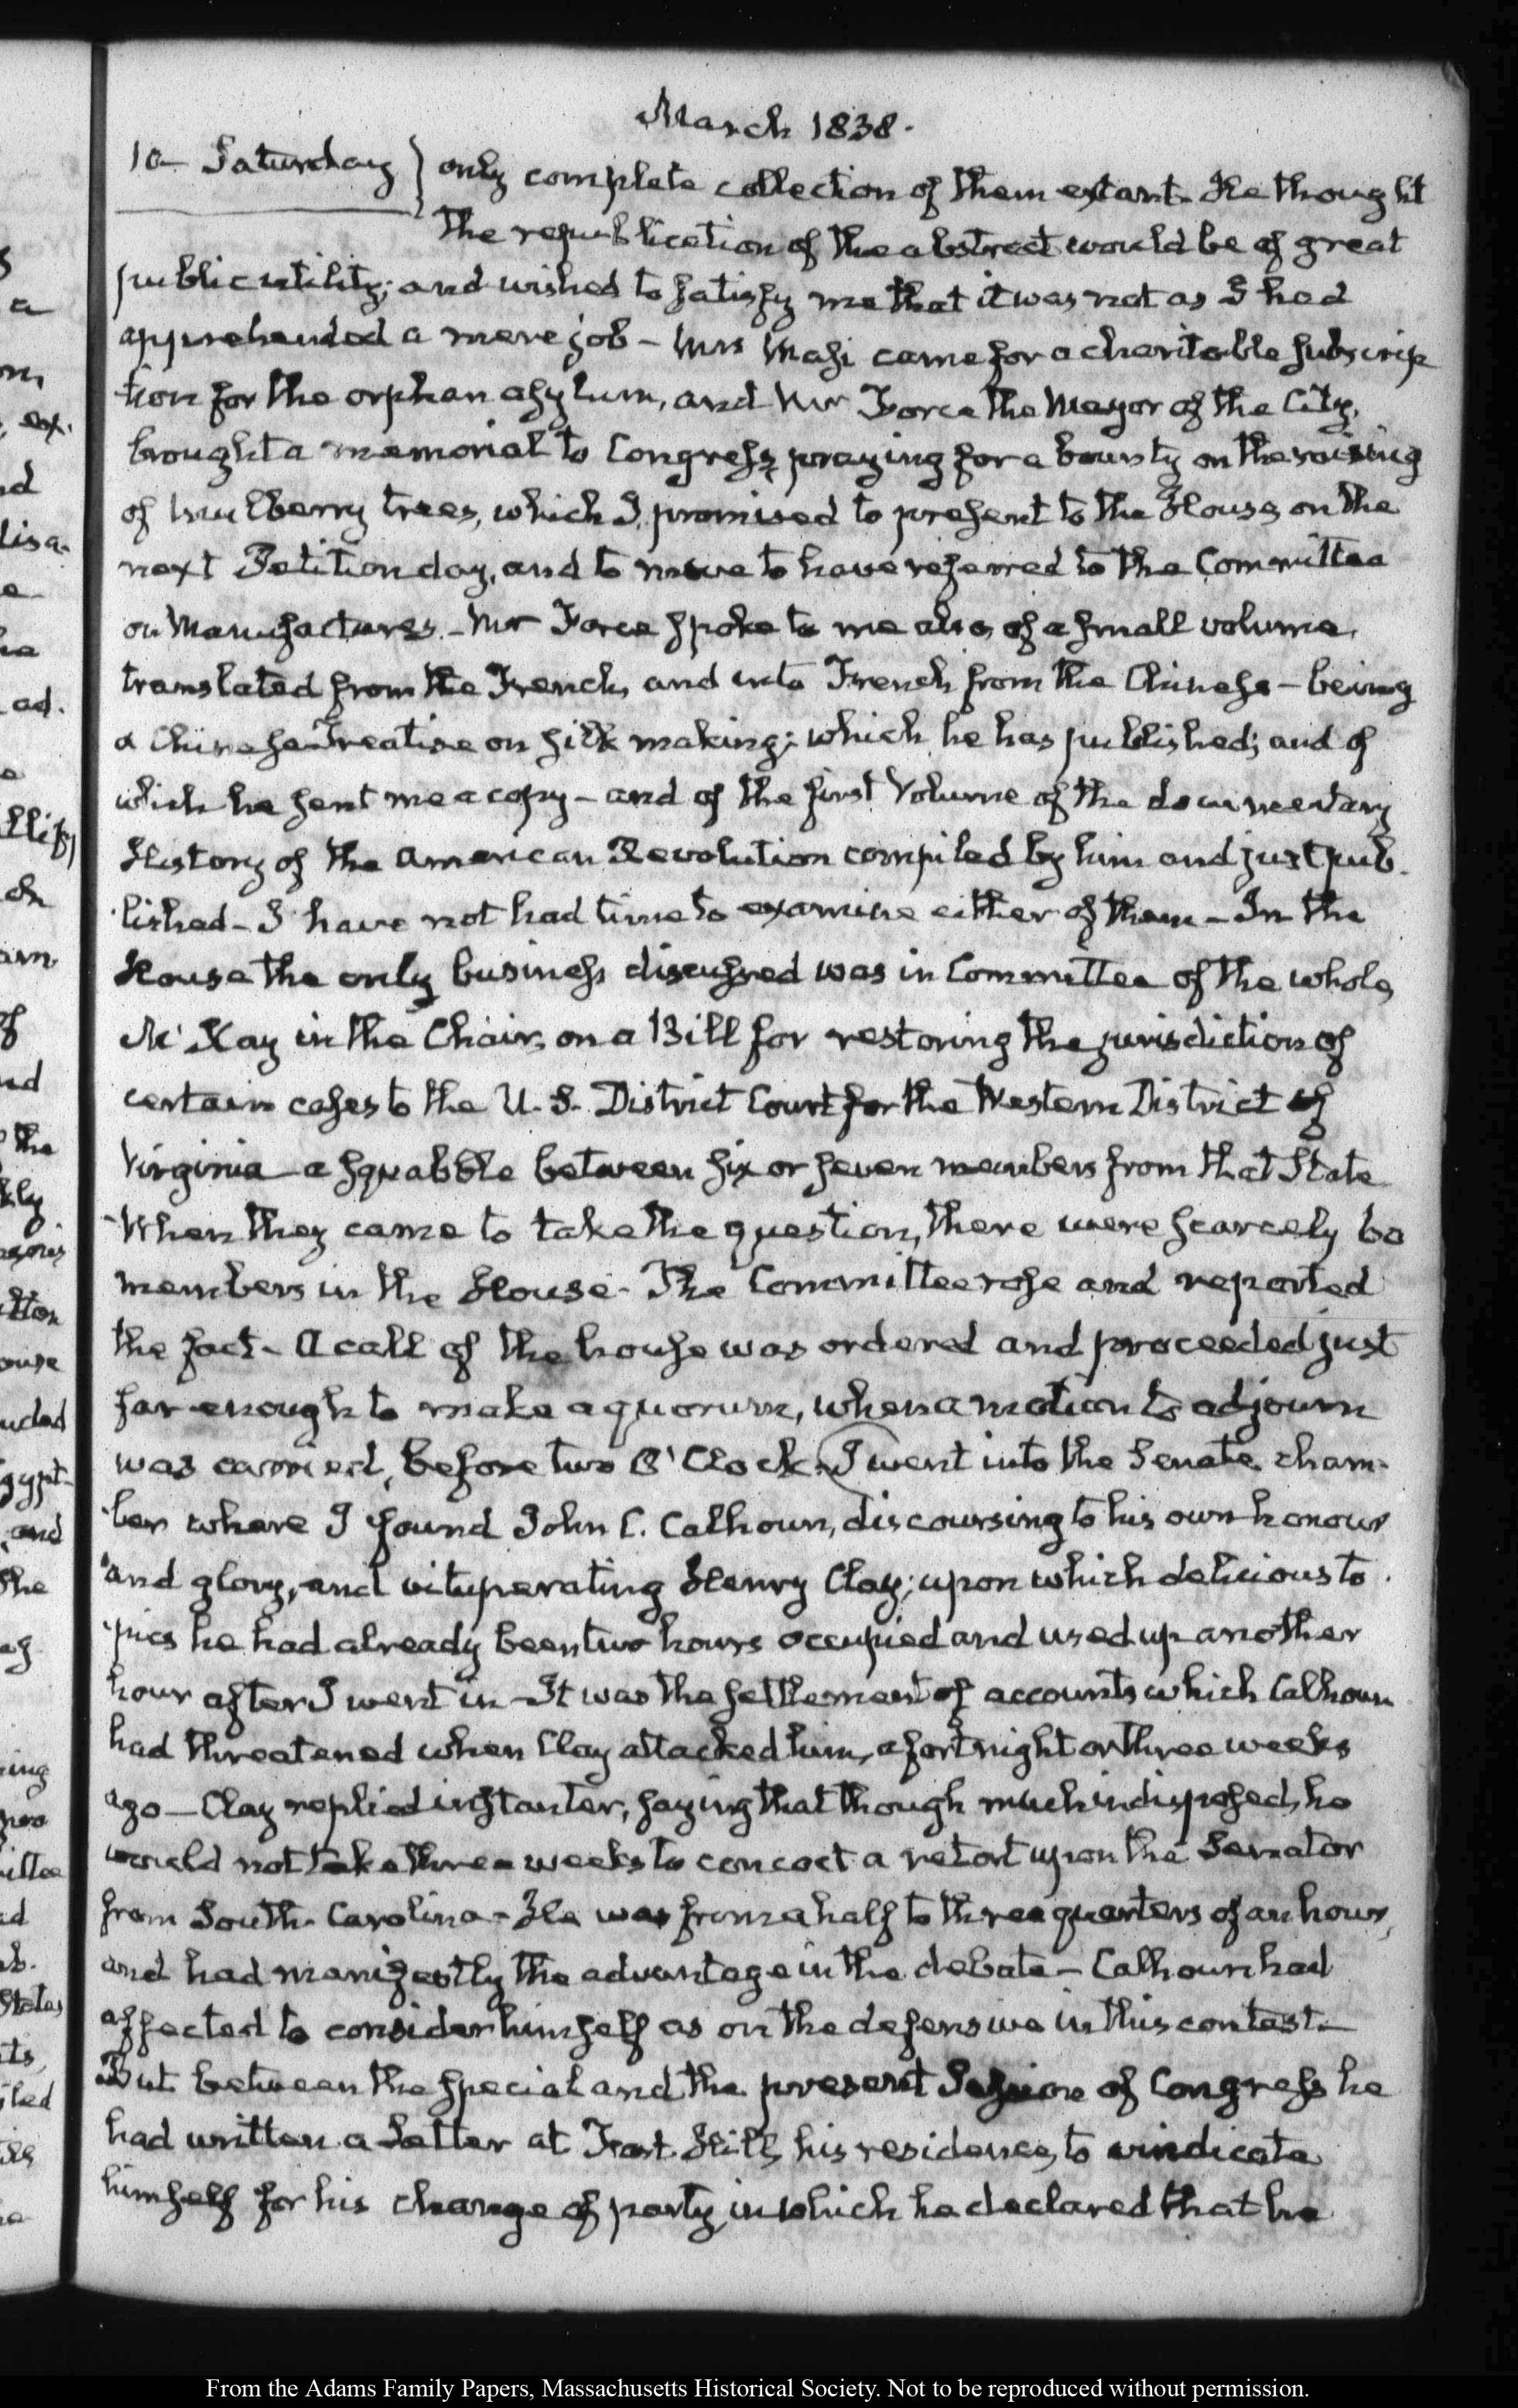 March 1838.
10 Saturday} only complete collection of them extant. He thought
the republication of the abstract would be of great
public utility; and wished to satisfy me that it was not as I had
apprehended a mere job — Mrs came for a charitable subscrip
tion for the orphan asylum, and Mr Force the Mayor of the City,
brought a memorial to Congress, praying for a bounty on the raising
of mulberry trees, which I promised to present to the House, on the
next Petition day, and to move to have referred to the Committee
on Manufactures. — Mr Force spoke to me also, of a small volume,
translated from the French, and into French from the Chinese — being
a Chinese Treatise on silk making; which he has published; and of
which he sent me a copy — and of the first Volume of the documentary
History of the American Revolution compiled by him and just pub-
lished — I have not had time to examine either of them — In the
House the only business discussed was in Committee of the whole,
McKay in the Chair, on a Bill for restoring the jurisdiction of
certain cases to the U. S. District Court for the Western District of
Virginia — a squabble between six or seven members from that State
When they came to take the question, there were scarcely 60
members in the House. The Committee rose and reported
the fact — A call of the house was ordered and proceeded just
far enough to make a quorum, when a motion to adjourn
was carried, before two O'Clock. I went into the Senate cham-
ber where I found John C. Calhoun, discoursing to his own honour
and glory, and vituperating Henry Clay; upon which delicious to-
pics he had already been two hours occupied and used up another
hour after I went in — It was the settlement of accounts which Calhoun
had threatened when Clay attacked him, a fortnight or three weeks
ago — Clay replied instanter, saying that though much indisposed, he
would not take three weeks to concoct a retort upon the Senator
from South-Carolina — He was from a half to three quarters of an hour,
and had manifestly the advantage in the debate — Calhoun had
affected to consider himself as on the defensive in this contest. —
But between the special and the present Session of Congress he
had written a Letter at Fort Hill, his residence, to vindicate
himself for his change of party, in which he declared that he
From the Adams Family Papers, Massachusetts Historical Society. Not to be reproduced without permission.